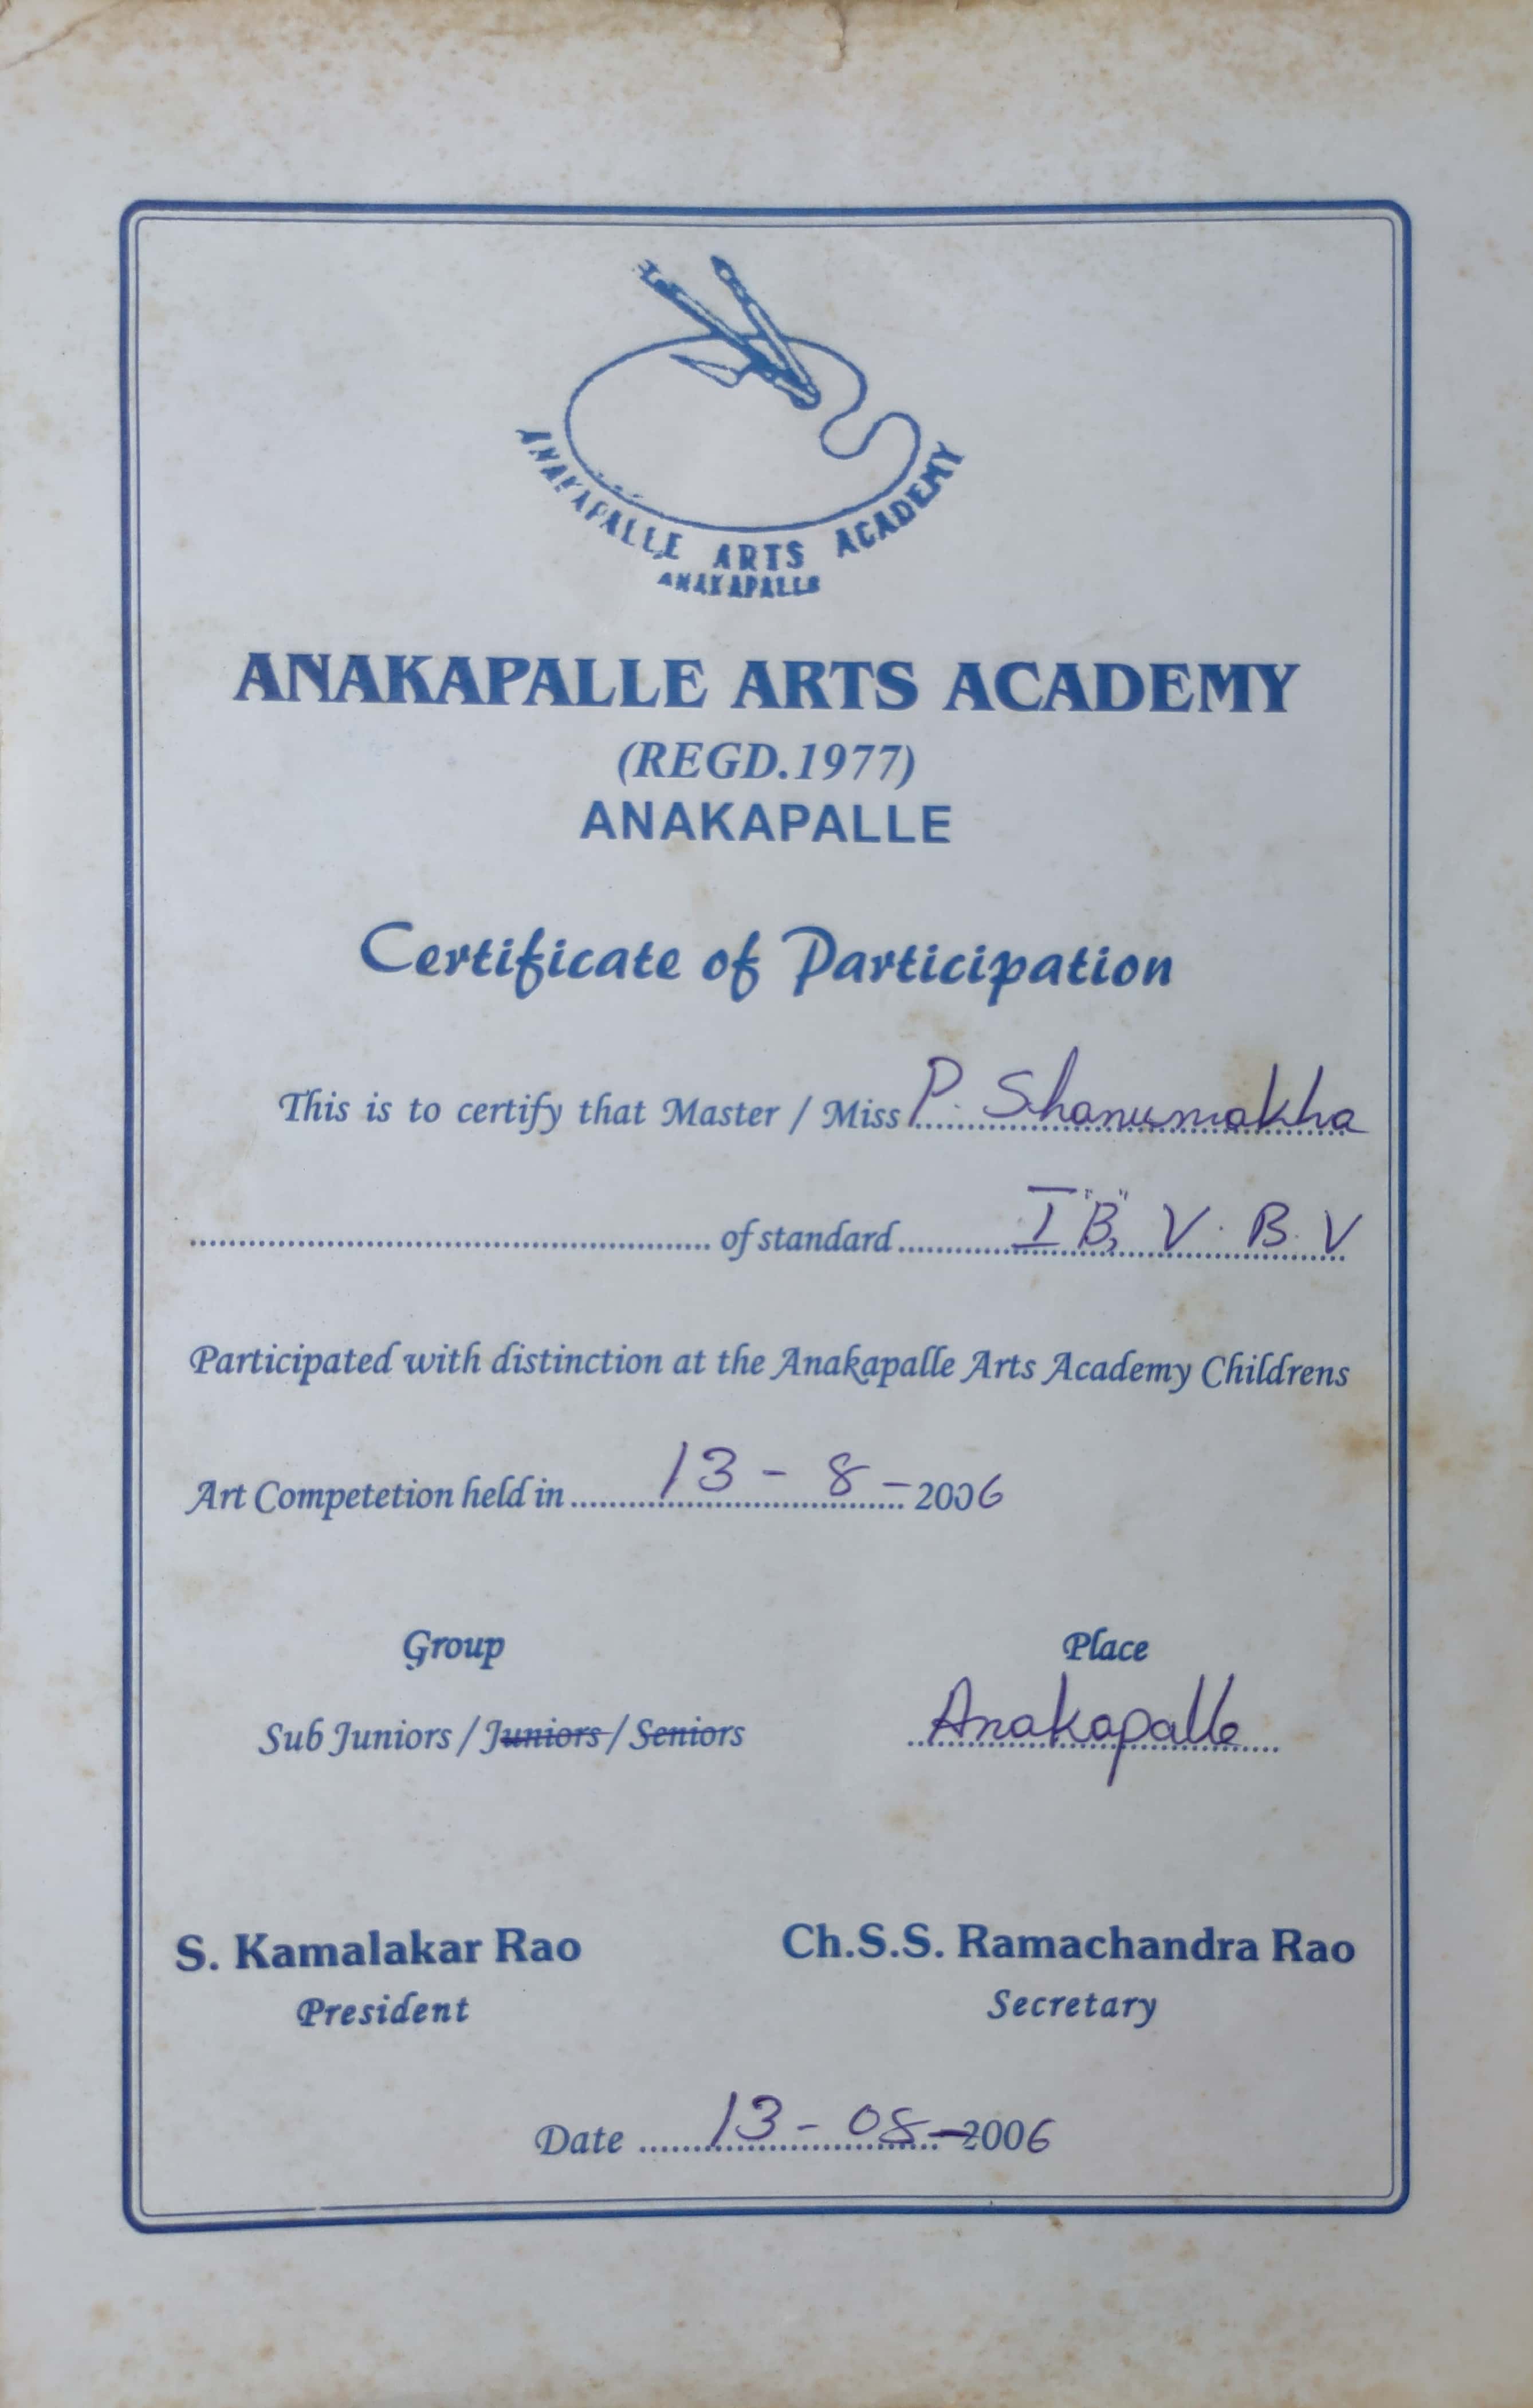 ANAKAPALLE ARTS ACADEMY
ANAKAPALLE
ANAKAPALLE ARTS ACADEMY
(REGD.1977)
ANAKAPALLE
Certificate of Participation
This is to certify that Master / Miss P. Shanumakha
of standard I "B", V. B. V
Participated with distinction at the Anakapalle Arts Academy Childrens
Art Competetion held in 13 - 8 - 2006
Group Place
Sub Juniors / Juniors / Seniors Anakapalle
S. Kamalakar Rao Ch.S.S. Ramachandra Rao
President Secretary
Date 13 - 08 - 2006